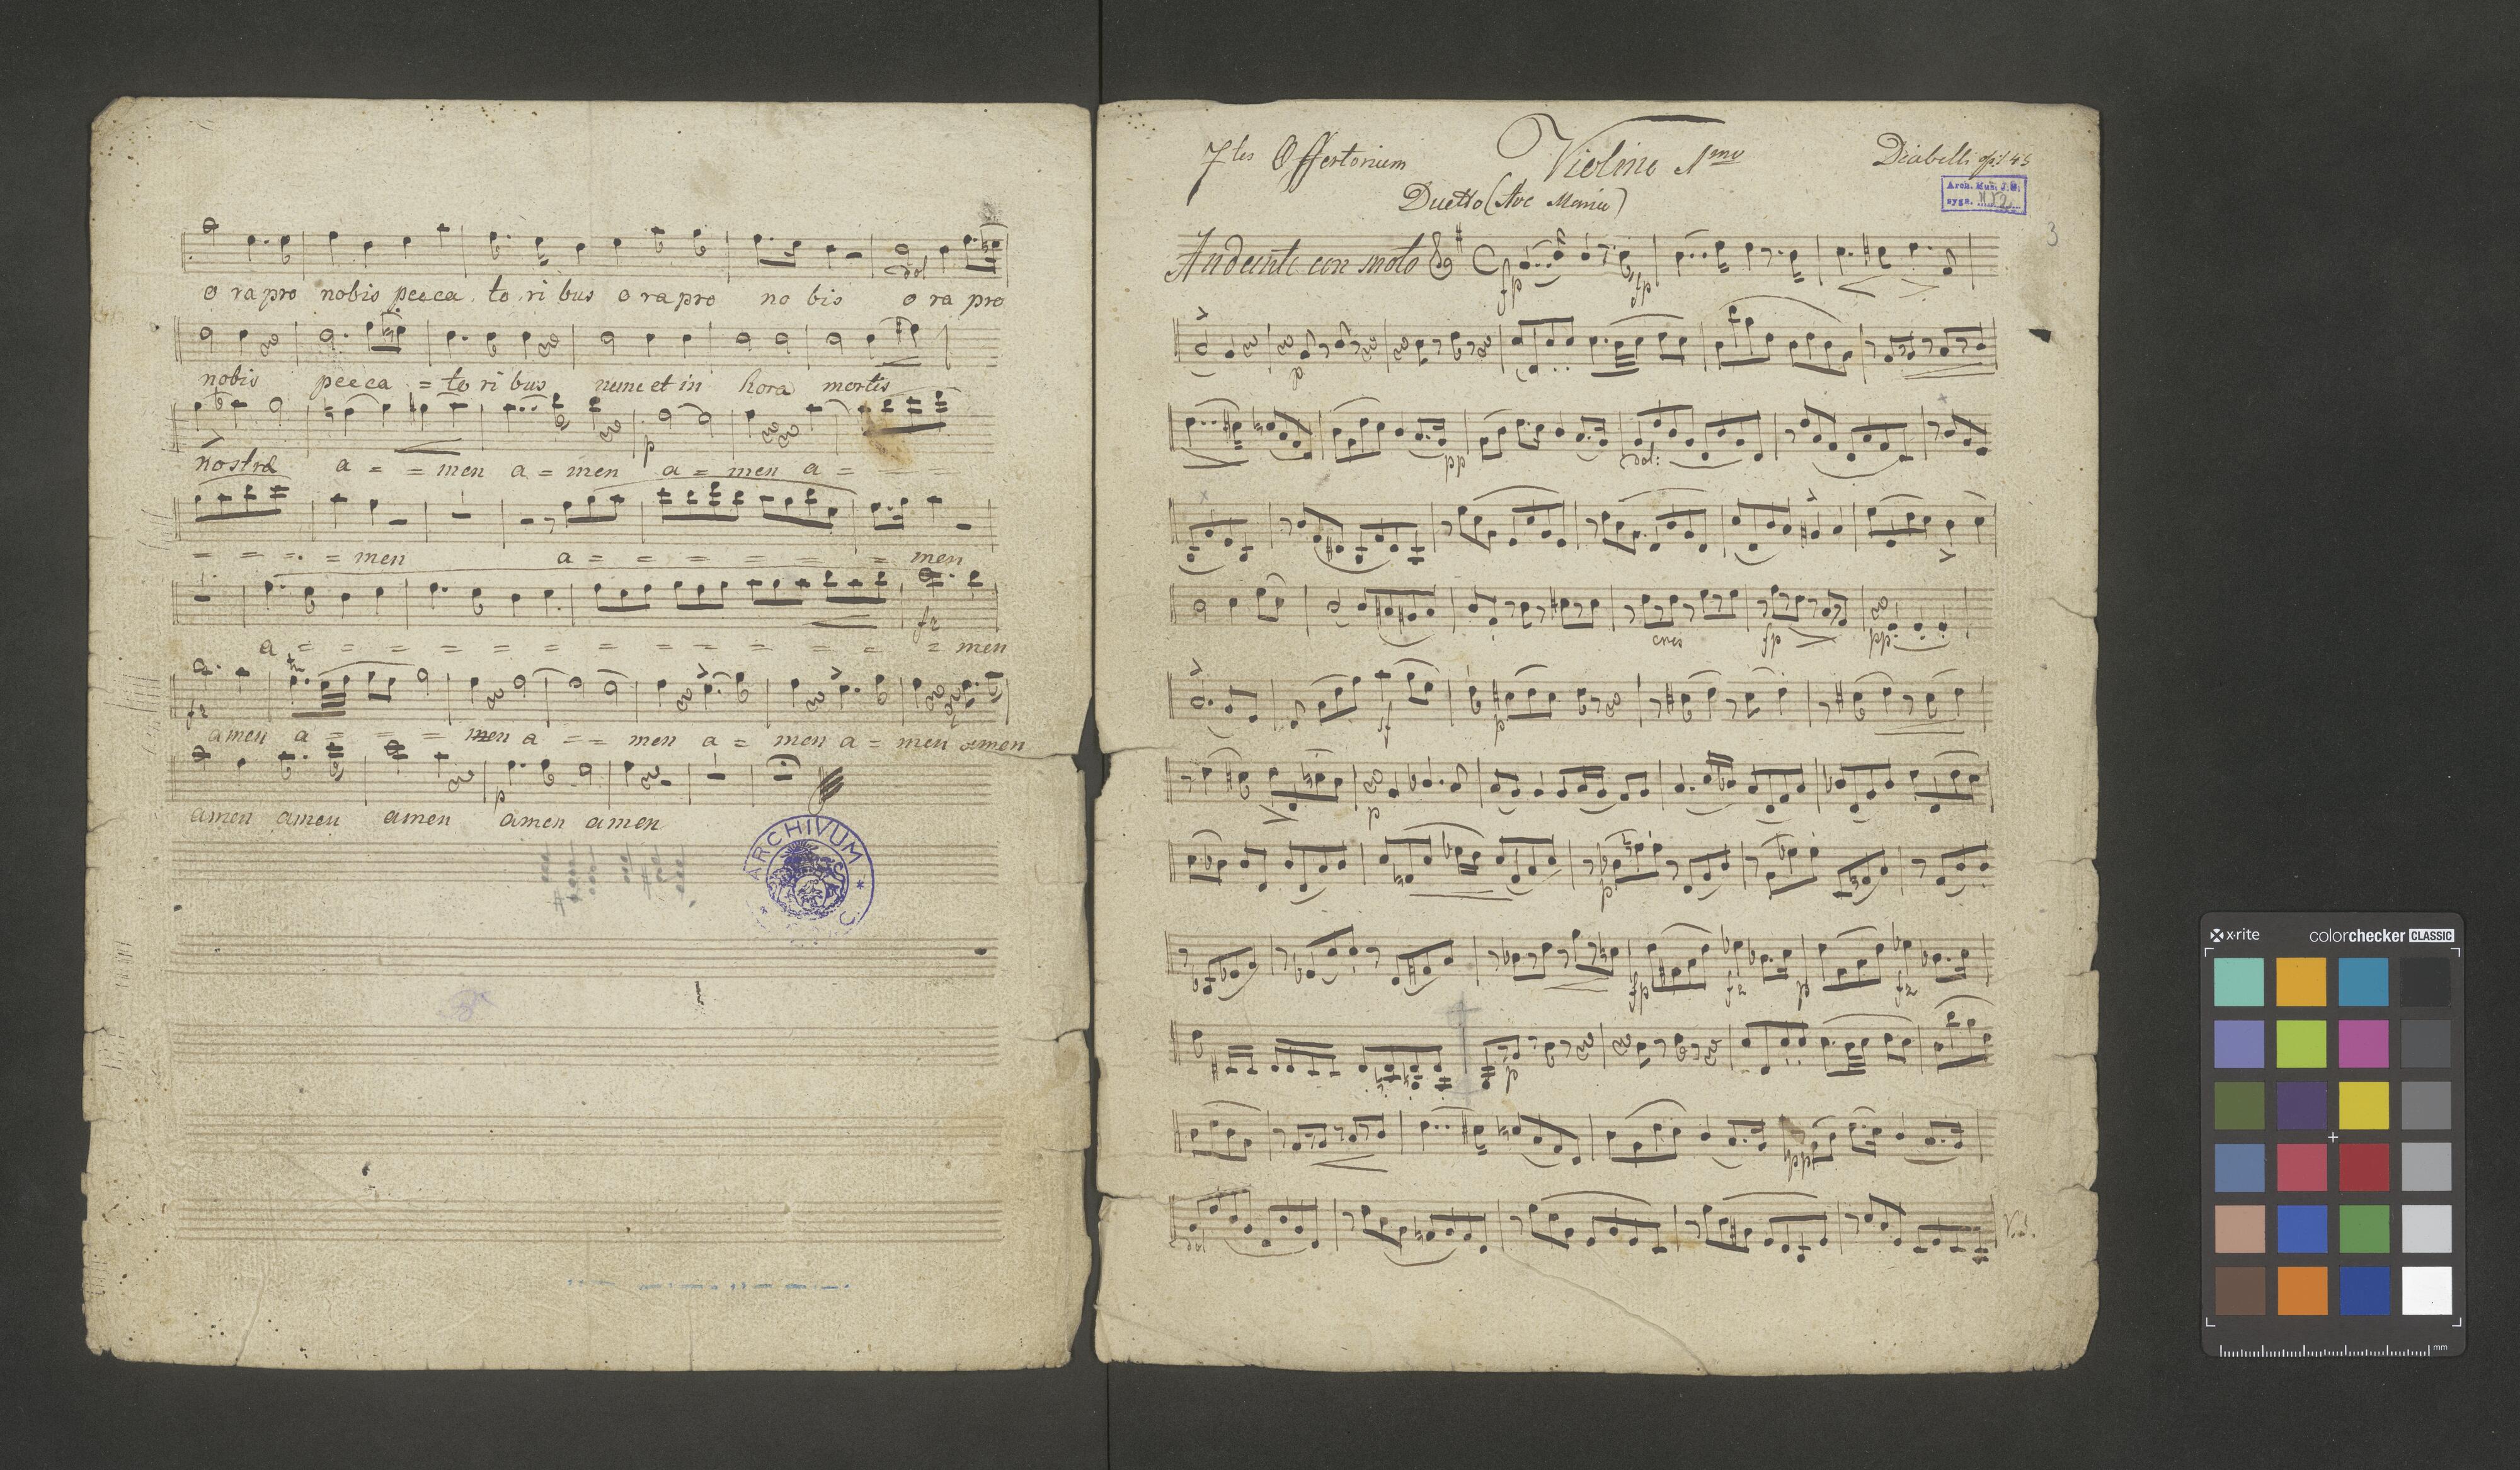 o ra pro nobis pecca to ri bus o ra pro no bis o ra pro
dol
nobis pecca = to ri bus nunc et in hora mortis
p
nostræ a = = men a = men a = men a = = =
= = = = men a = = = = = = men
fz
a = = = = = = = = = = = = = men
tr
fz
amen a = = = men a = = men a = men a = men amen
p
amen amen amen amen amen
ARCHIVUM
7tes Offertorium Violino 1mo Diabelli op: 45
Duetto (Ave Maria)
Arch. Mus. J. G.
sygn. 112
3
Andante con moto fp fp
p
pp dol:
cres fp pp
f p
p
p
fp fz p fz
p
pp
dol V.S.
x-rite colorchecker CLASSIC
mm